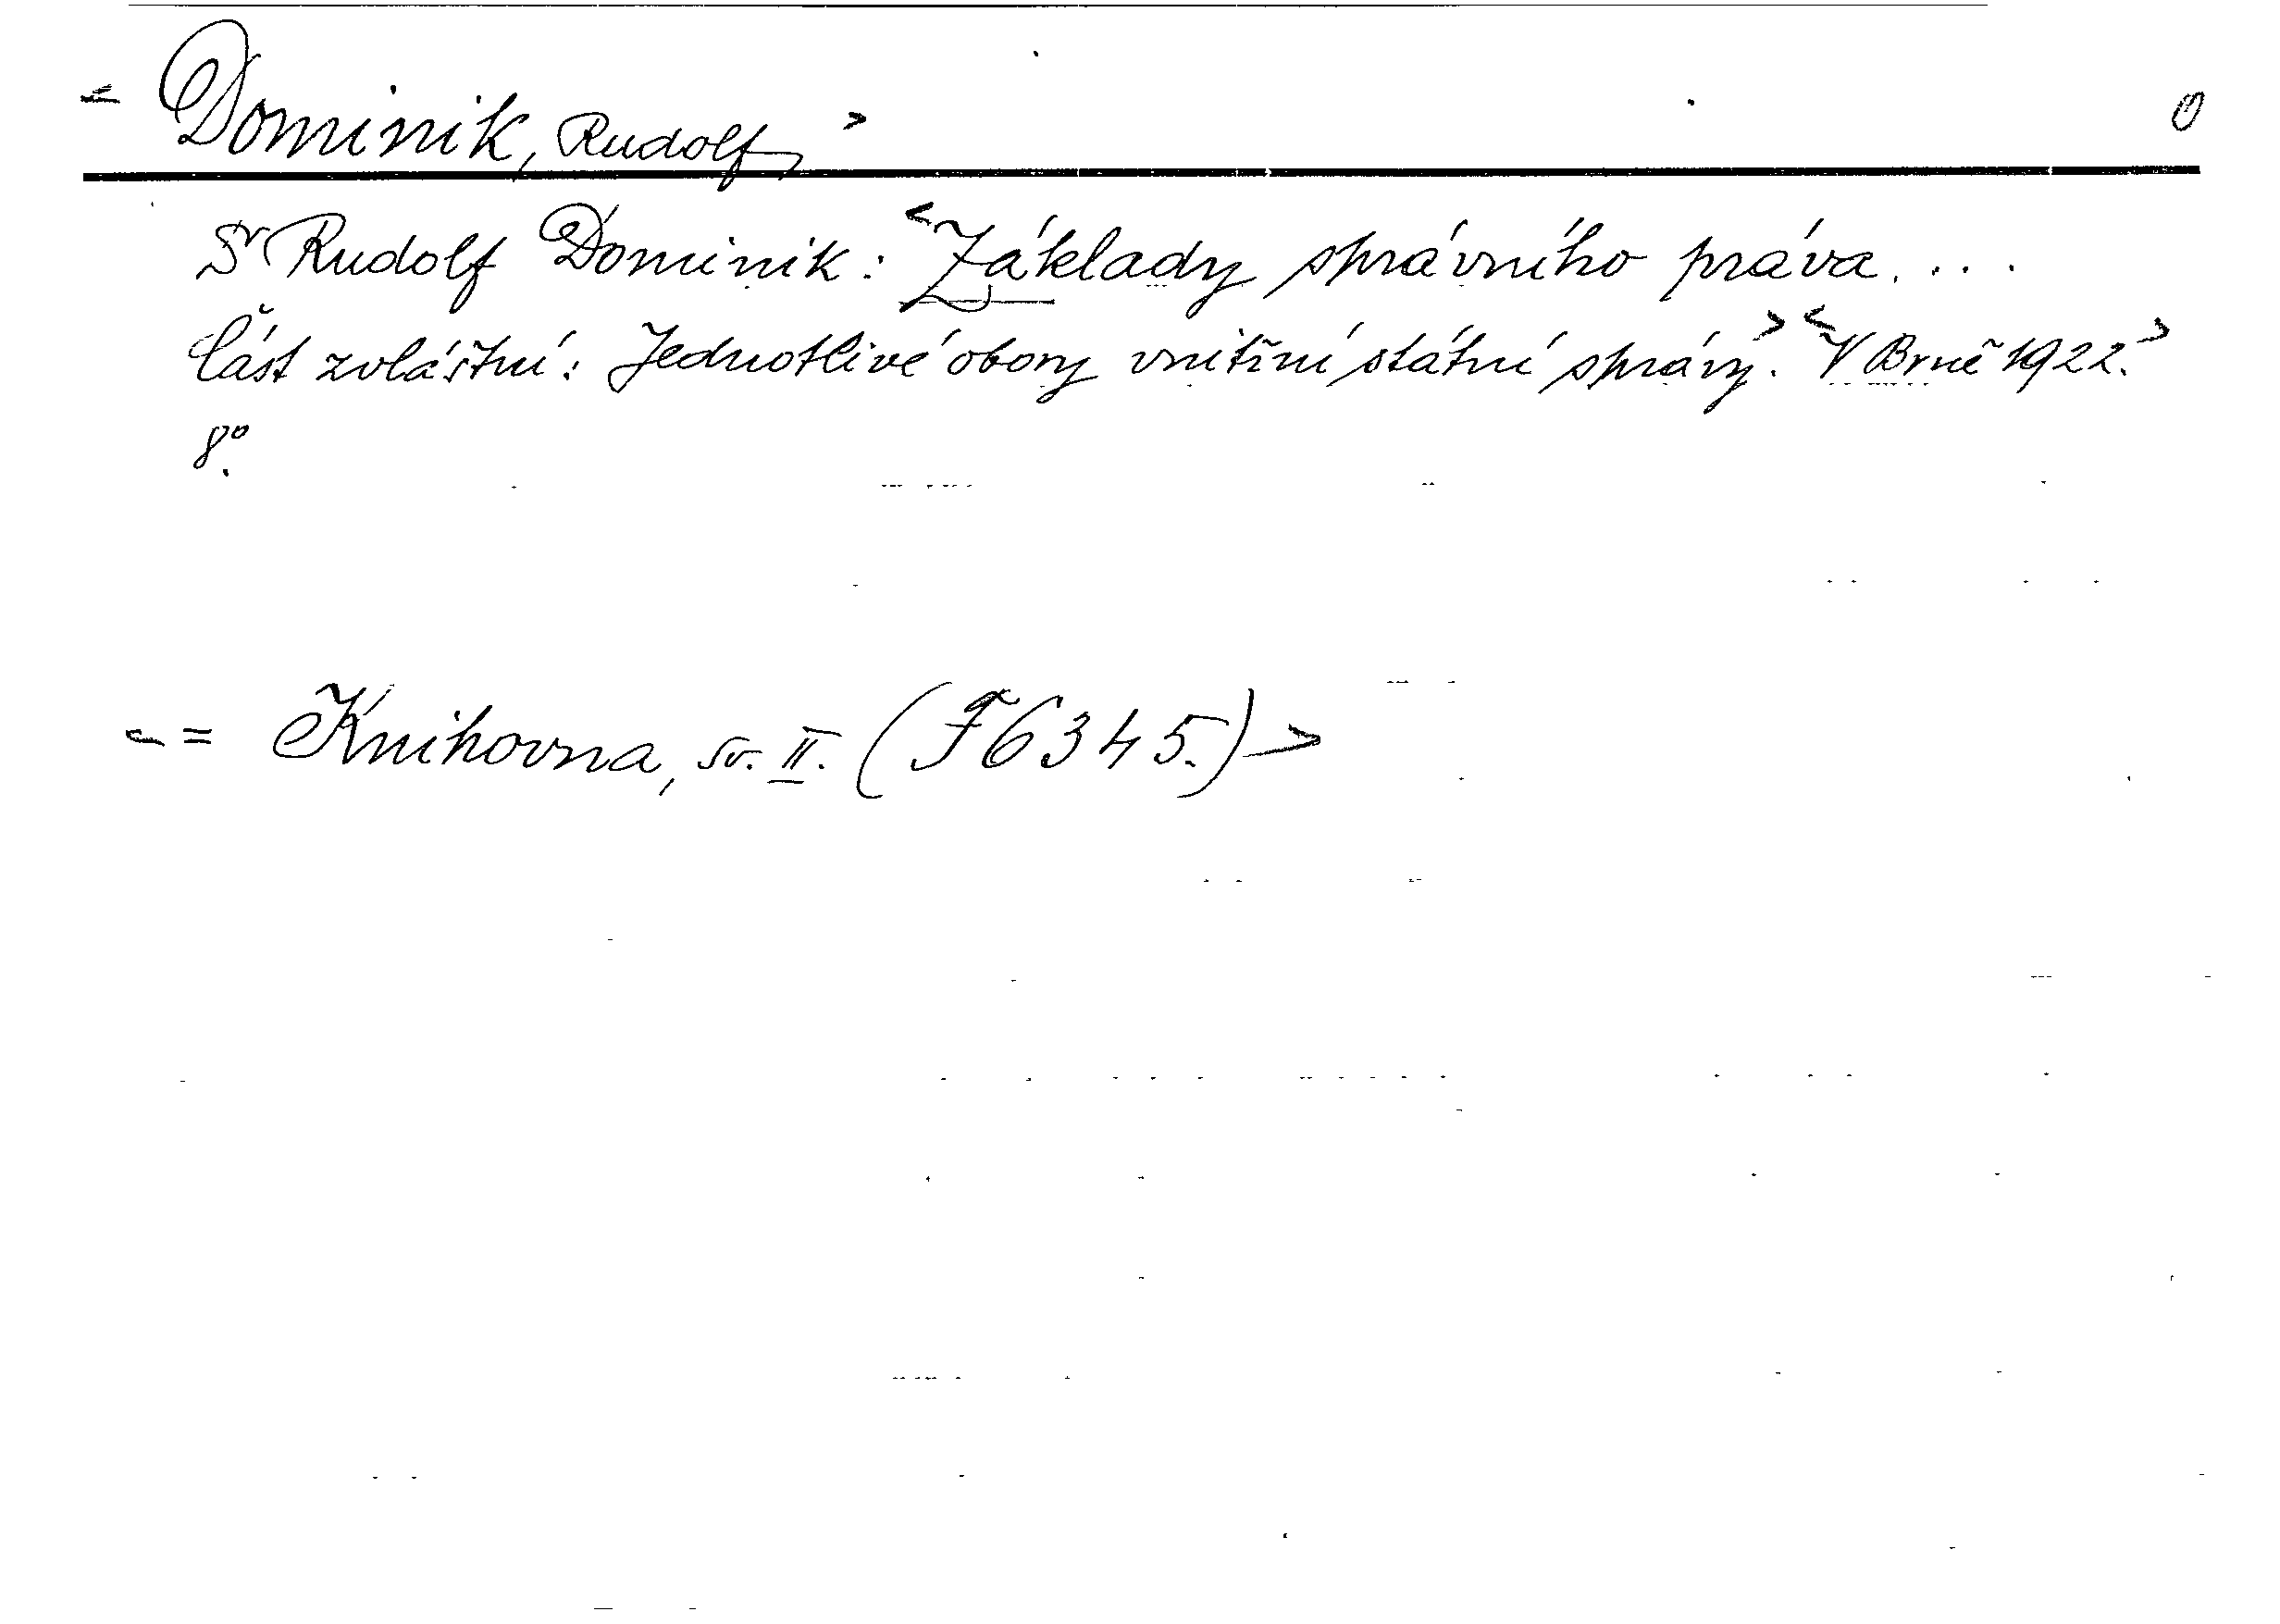 < Dominik, Rudolf > 0
Dr Rudolf Dominik: <Základy správního práva....
Část zvláštní: Jednotlivé obory vnitřní státní správy.> <V Brně 1922.>
8°.
< = Knihovna, sv. II. (F 6345.) >